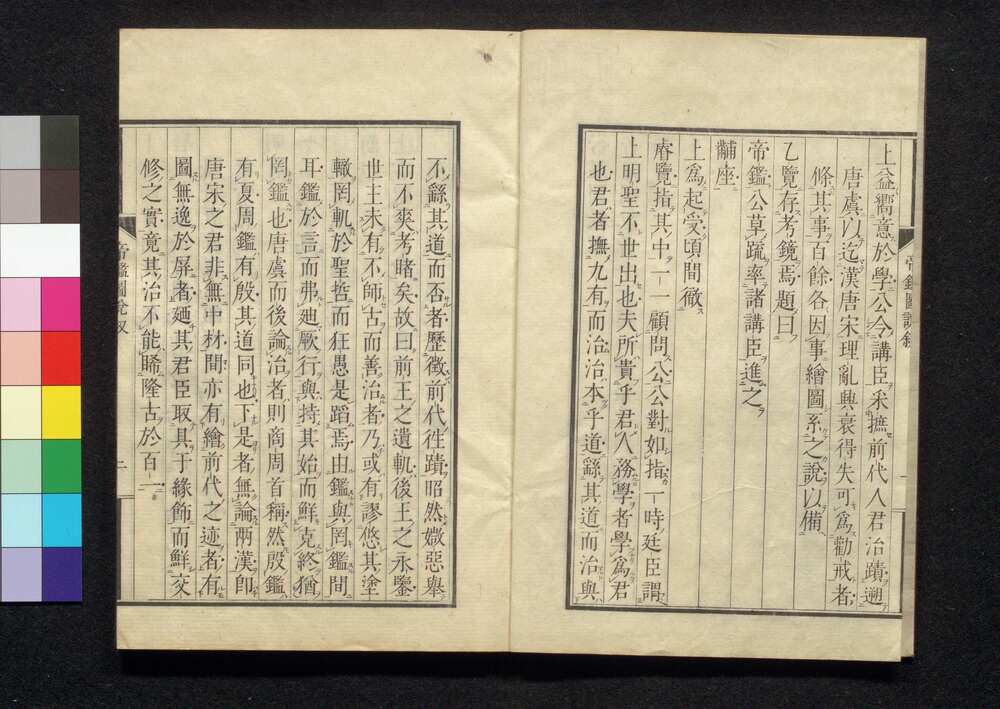 上益嚮意於學公令講臣采摭前代人君治蹟遡
唐虞以迄漢唐宋理亂興衰得失可爲勸戒者
條其事百餘各因事繪圖系之說以備
乙覽存考鏡焉題曰
帝鑑公草疏率諸講臣進之
黼座
上爲起受頃間徹
睿覽指其中一一顧問公公對如指一時廷臣謂
上明聖不世出也夫所貴乎君人務學者學爲君
也君者撫九有而治治本乎道繇其道而治與
不繇其道而否者歷徵前代徃蹟昭然媺惡舉
而不爽考睹矣故曰前王之遺軌後王之永鑒
世主未有不師古而善治者乃或有謬悠其塗
轍罔軌於聖哲而狂愚是蹈焉由鑑與罔鑑間
耳鑑於言而弗迪厥行與持其始而鮮克終猶
罔鑑也唐虞而後論治者則商周首稱然殷鑑
有夏周鑑有殷其道同也下是者無論两漢卽
唐宋之君非無中材間亦有繪前代之迹者有
圖無逸於屏者廼其君臣取具于緣飾而鮮交
修之實竟其治不能睎隆古於百一
帝鑑圖說敘